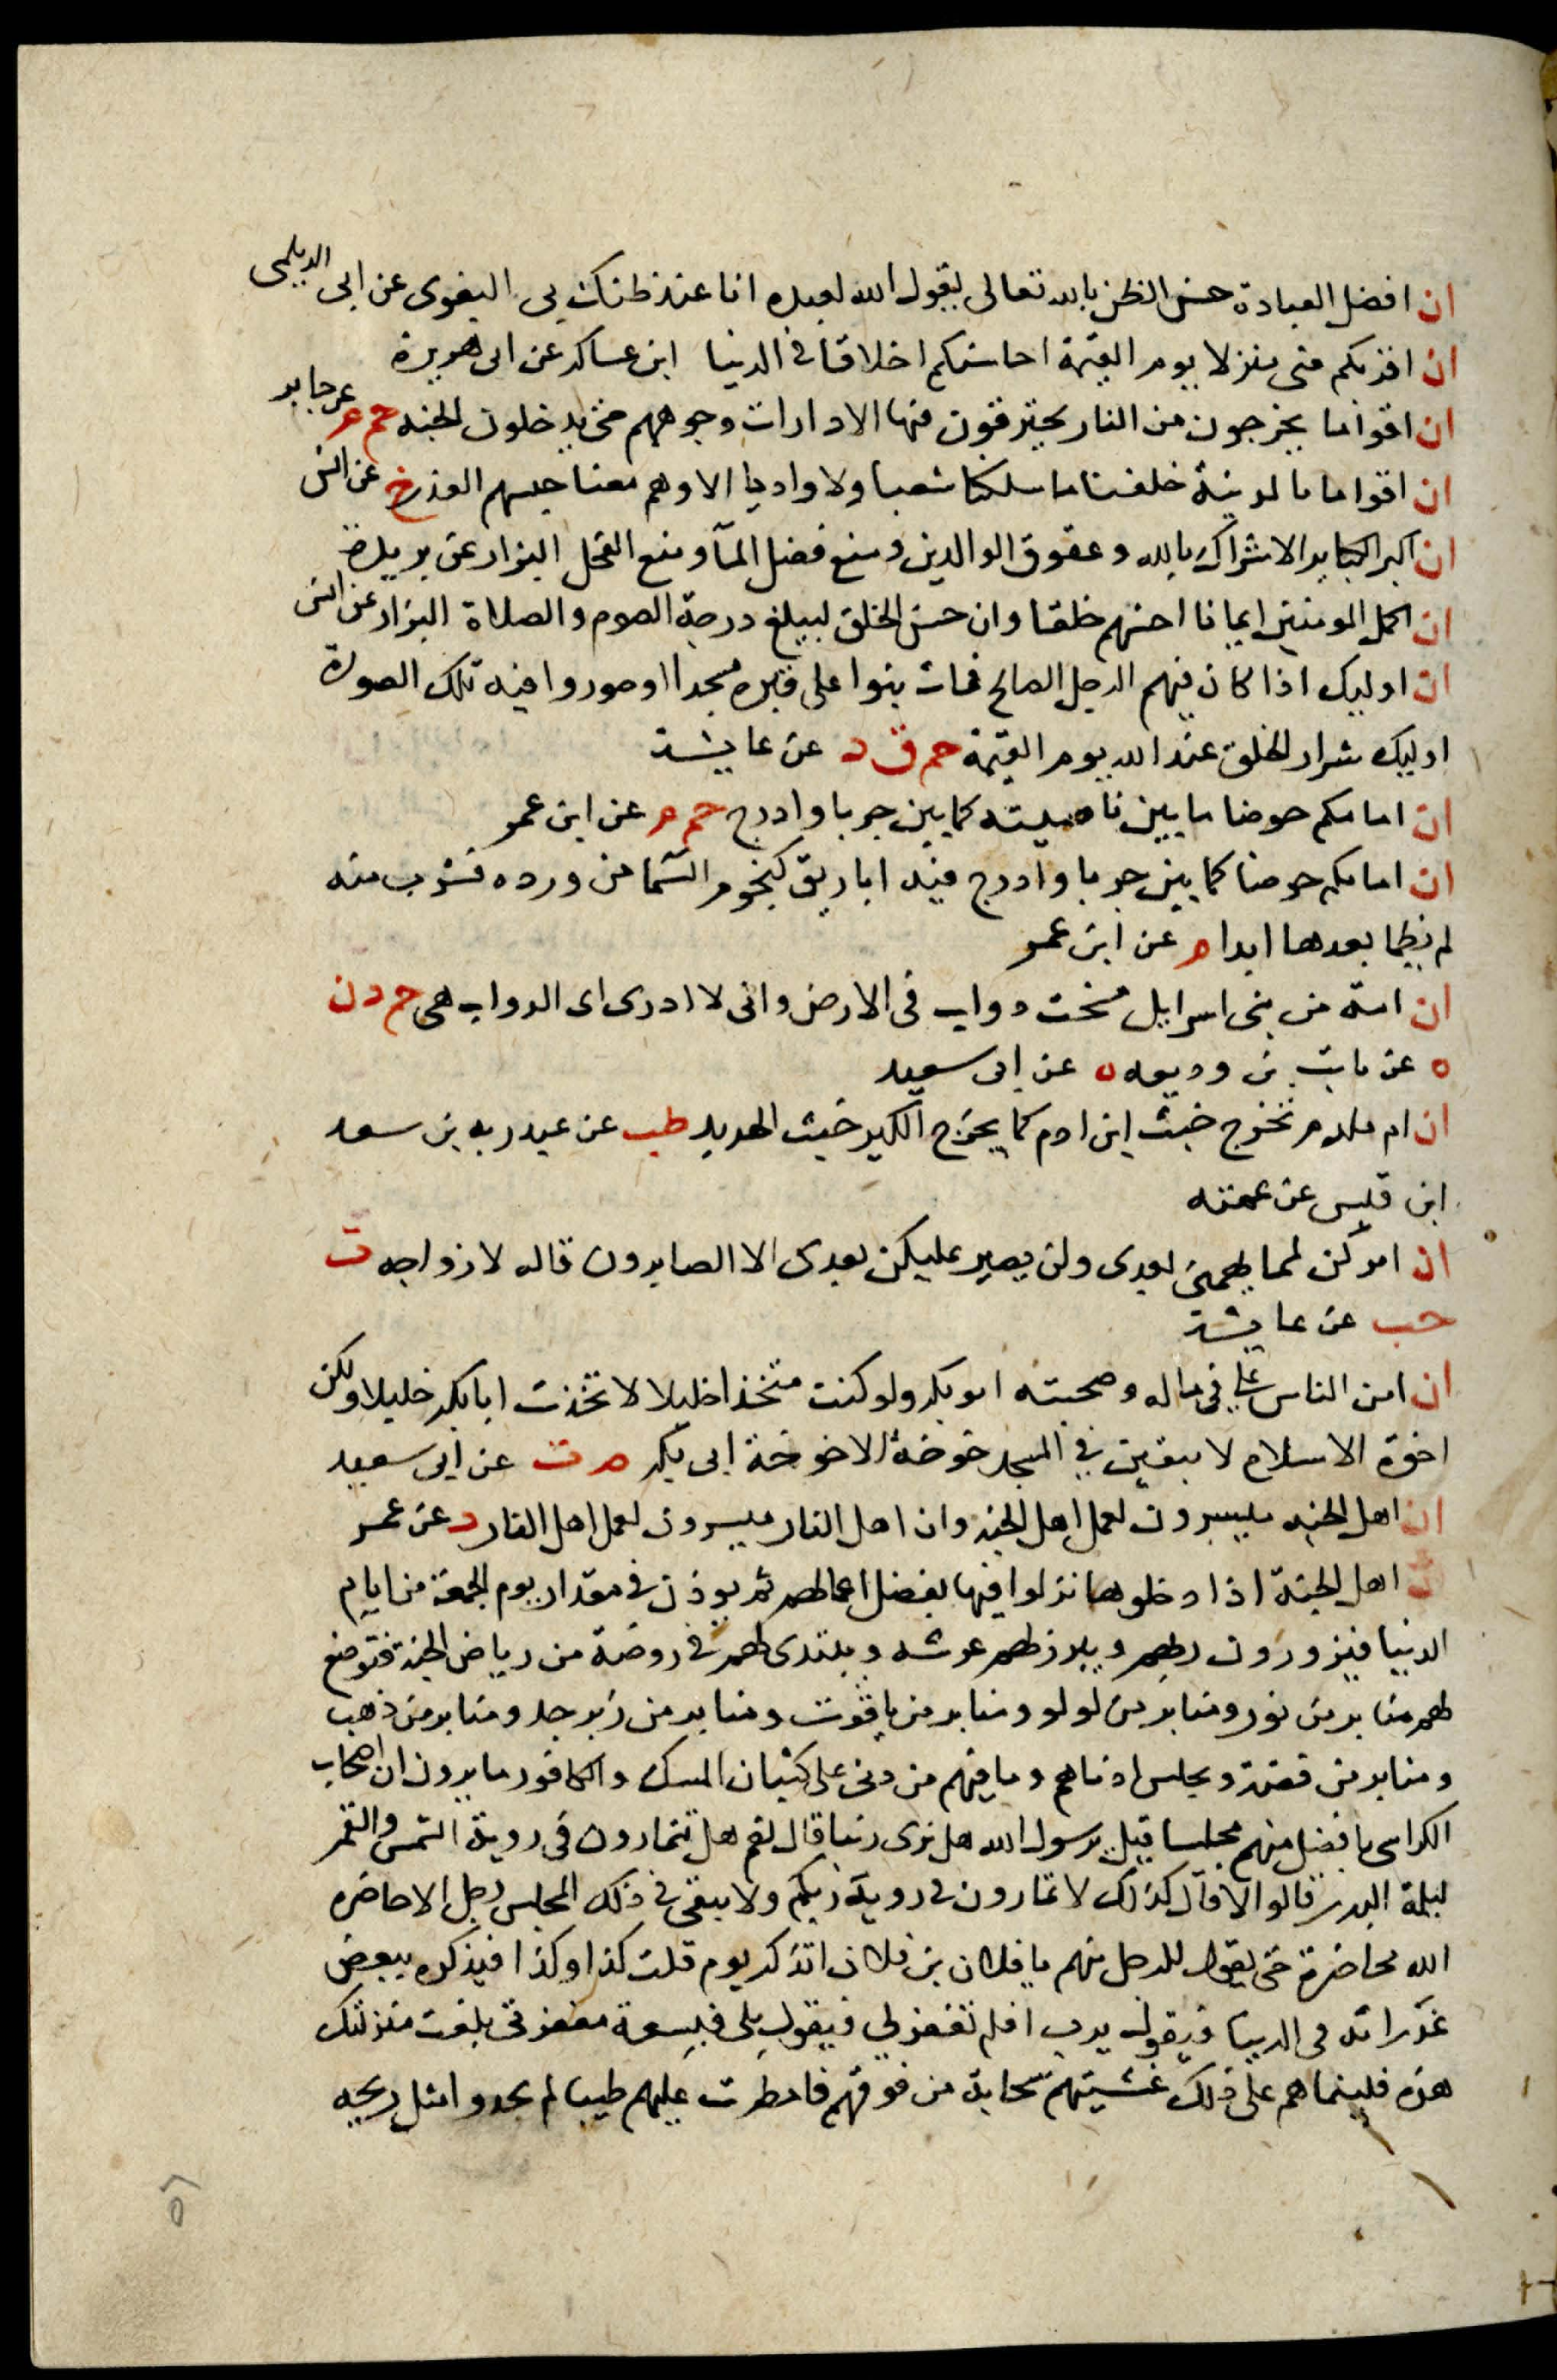 ان افضل العبادة حسن الظن بالله تعالى يقول الله لعبده انا عند ظنك بى البغوى عن ابى الديلمى
ان اقربكم منى منزلا يوم القيمة احاسنكم اخلاقا فى الدنيا ابن عساكر عن ابى هريرة
ان اقواما يخرجون من النار يحترقون فيها الا دارات وجوههم حتى يدخلون الجنه حم م عن جابر
ان اقواما بالمدينة خلفنا ما سلكنا شعبا ولا واديا الا وهم معنا حبسهم العذر خ عن انس
ان اكبر الكباير الاشراك بالله وعقوق الوالدين ومنع فضل المآ ومنع الفحل البزار عن بريدة
ان اكمل المومنين ايمانا احسنهم خلقا وان حسن الخلق ليبلغ درجة الصوم والصلاة البزار عن انس
ان اوليك اذا كان فيهم الرجل الصالح فمات بنوا على قبره مسجدا اوصوروا فيه تلك الصورة
اوليك شرار الخلق عند الله يوم القيمة حم ق د عن عايشة
ان امامكم حوضا ما بين ناحيته كما بين جربا وادرج حم م عن ابن عمر
ان امامكم حوضا كما بين جربا وادرج فيه اباريق كنجوم السما من ورده فشرب منه
لم يظما بعدها ابدا م عن ابن عمر
ان امة من بنى اسرايل مسخت دواب فى الارض وانى لا ادرى اى الدواب هى حم د ن
ه عن ثابت بن وديعه ه عن ابى سعيد
ان ام ملدم تخرج خبث ابن ادم كما يخرج الكير خبث الحديد طب عن عبد ربه بن سعد
ابن قيس عن عمته
ان امركن لمما يهمنى بعدى ولن يصبر عليكن بعدى الا الصابرون قاله لازواجه ت
حب عن عايشة
ان امن الناس على فى ماله وصحبته ابو بكر ولو كنت متخذا خليلا لاتخذت ابا بكر خليلا ولكن
اخوة الاسلام لا يبقين فى المسجد خوخة الا خوخة ابى بكر م ت عن ابى سعيد
ان اهل الجنه ميسرون لعمل اهل الجنه وان اهل النار ميسرون لعمل اهل النار د عن عمر
ان اهل الجنة اذا دخلوها نزلوا فيها بفضل اعمالهم ثم يوذن فى مقدار يوم الجمعة من ايام
الدنيا فيزورون ربهم ويبرز لهم عرشه ويبتدى لهم فى روضة من رياض الجنة فتوضع
لهم منابر من نور ومنابر من لولو ومنابر من ياقوت ومنابر من زبرجد ومنابر من ذهب
ومنابر من فضة ويجلس ادناهم وما فيهم من دنى على كثبان المسك والكافور ما يرون ان اصحاب
الكراسى بافضل منهم مجلسا قيل يرسول الله هل نرى ربنا قال نعم هل تتمارون فى روية الشمس والقمر
ليلة البدر قالوا لا قال كذلك لا تمارون فى روية ربكم ولا يبقى فى ذلك المجلس رجل الا حاضره
الله محاضرة حتى يقول للرجل منهم يا فلان بن فلان اتذكر يوم قلت كذا وكذا فيذكره ببعض
غدراته فى الدنيا فيقول يرب افلم تغفر لى فيقول بلى فبسعة مغفرتى بلغت منزلتك
هذه فبينما هم على ذلك غشيتهم سحابة من فوقهم فامطرت عليهم طيبا لم يجدوا مثل ريحه